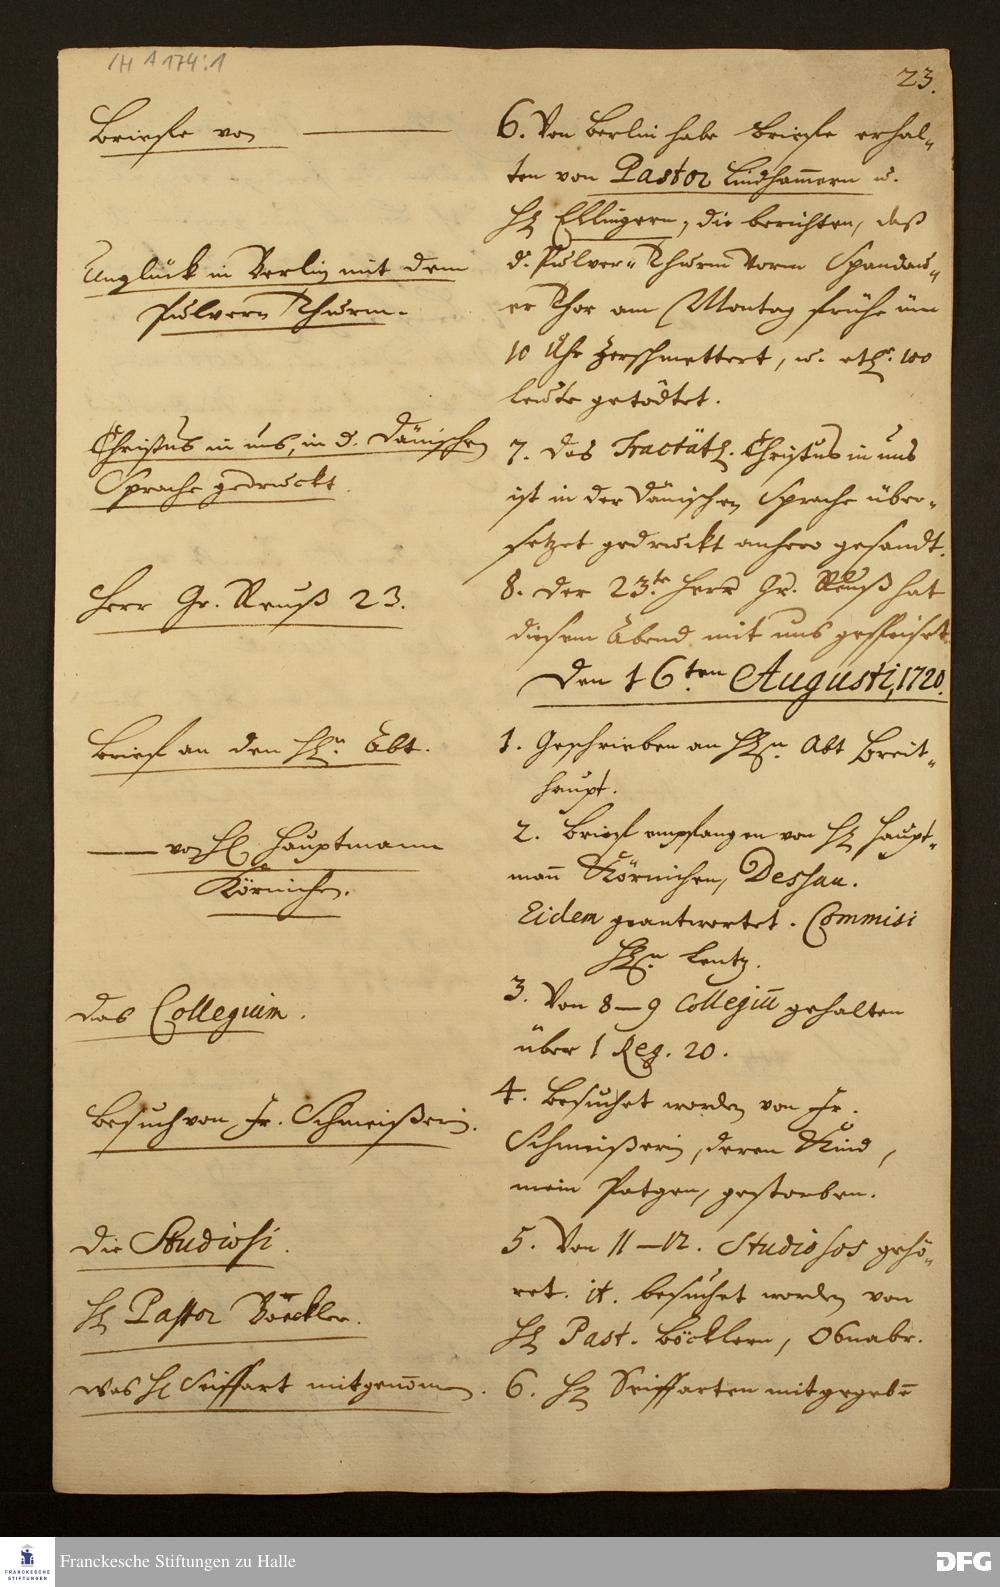 /H A 174:1
23.
Briefe von
6. Von Berlin habe Briefe erhal„
ten von Pastor Lindhammern u.
H Ellingern, die berichten, daß
Unglück in Berlin mit dem
d. Pulver„ Thurm vorm Spandau„
Pulvern Thurm.
er Thor am Montag frühe um
10 Uhr zerschmettert, u. etl. 100
leute getödtet.
Christus in uns, in d. Dänischen
Sprache gedruckt.
7. Das Tractätl. Christus in uns
ist in der Dänischen Sprache über„
setzet gedruckt anhero gesandt.
Herr Gr. Reuß 23.
8. Der 23.te Herr Gr. Reuß hat
diesen Abend mit uns gespeiset.
Den 16.ten Augusti, 1720.
Brief an den Hn. Abt.
1. Geschrieben an Hn. Abt Breit„
haupt.
von H Hauptmann
Körnichen.
2. Brief empfangen von H Haupt„
mann Körnichen, Dessau.
Eidem geantwortet. Commisi
Hn. Lentz.
Das Collegium.
3. Von 8–9 Collegiū gehalten
über 1 Reg. 20.
Besuch von Fr. Schmeißerin.
4. Besuchet worden von Fr.
Schmeißerin, deren Kind,
mein Patgen, gestorben.
Die Studiosi.
5. Von 11–12. Studiosos gehö„
ret. it. besuchet worden von
H Pastor Böckler.
H Past. Böcklern, Osnabr.
Was H Seiffart mitgenōmen.
6. H Seiffarten mitgegebē
Franckesche Stiftungen zu Halle
FRANCKESCHE
STIFTUNGEN
DFG